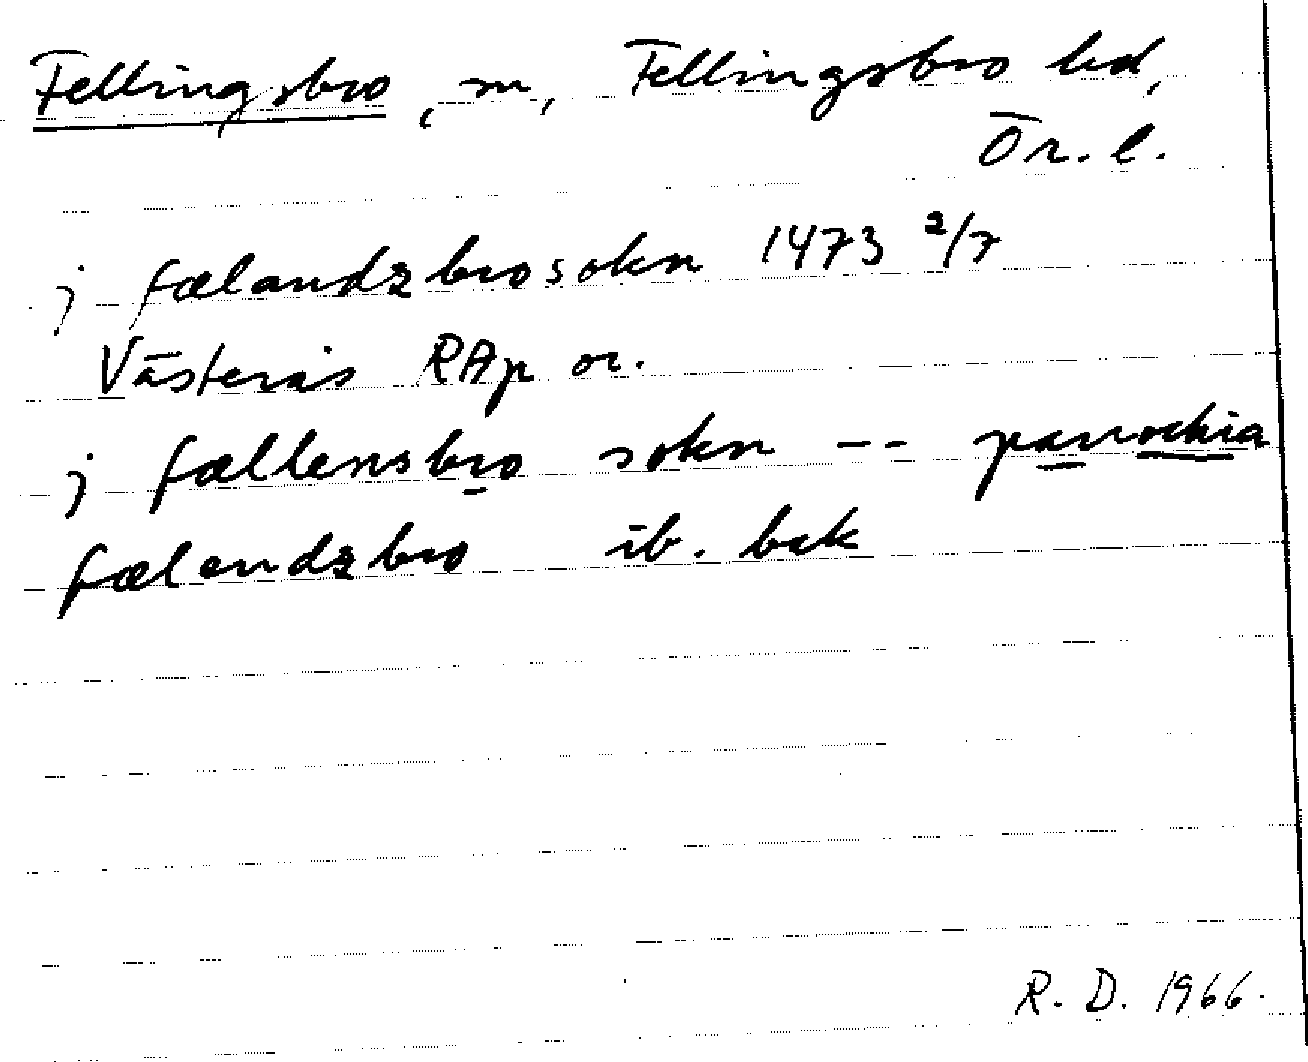 Fellingsbro, sn, Fellingsbro hd,
Ör. l.
j fælandzbrosokn 1473 2/7
Västerås RAp or.
j fællensbro sokn -- parochia
fælendzbro ib. bak
R. D. 1966.